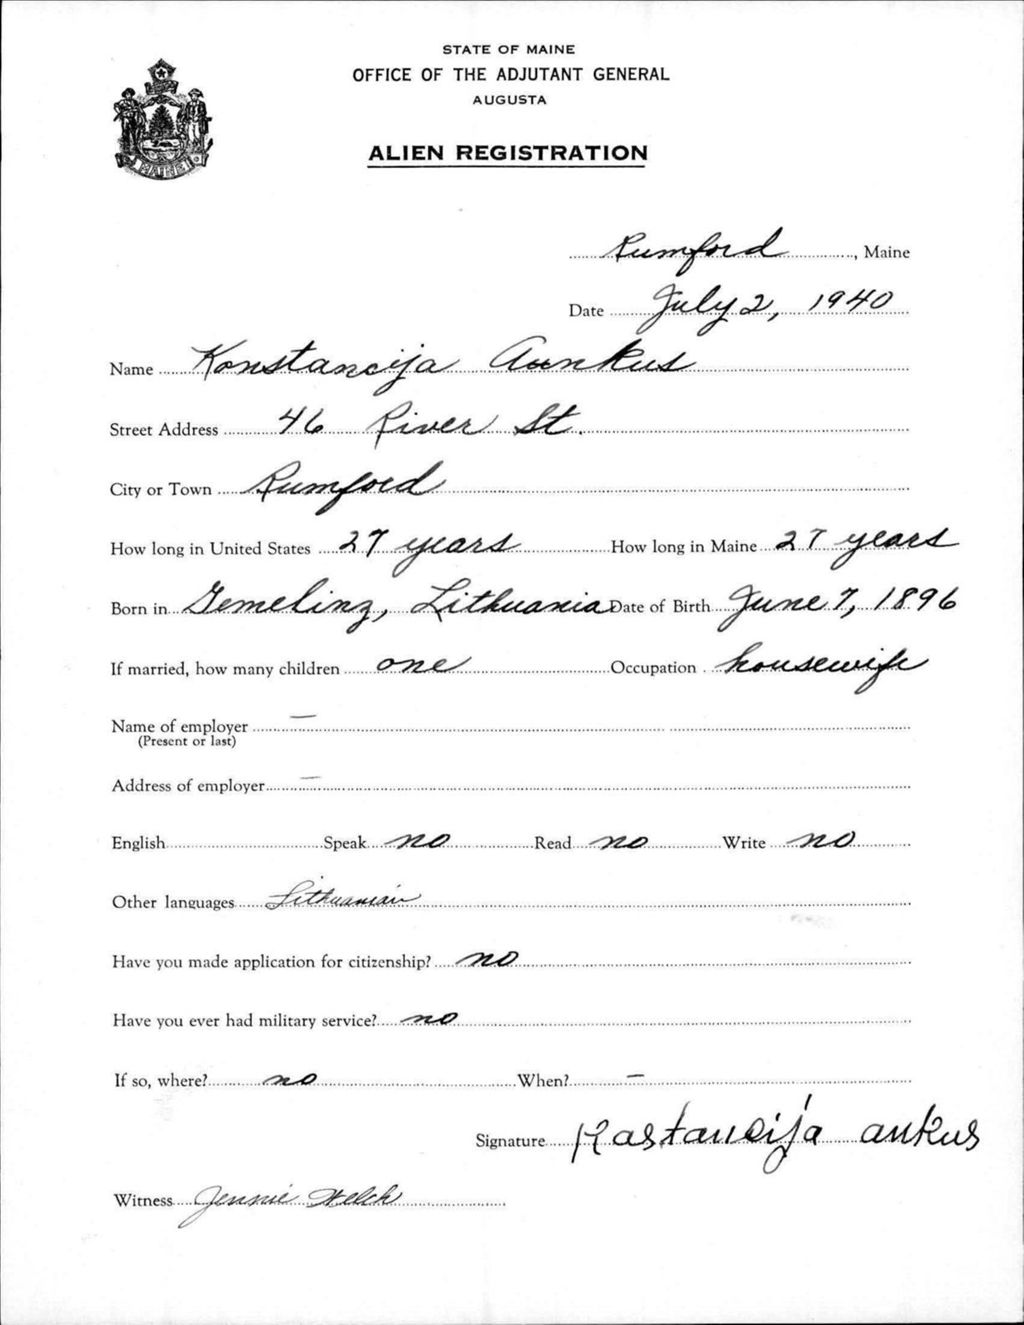 STATE OF MAINE
OFFICE OF THE ADJUTANT GENERAL
AUGUSTA
ALIEN REGISTRATION
MAINE
Rumford, Maine
Date July 2, 1940
Name Konstancija Aunkus
Street Address 46 River St.
City or Town Rumford
How long in United States 27 years How long in Maine 27 years
Born in Lithuania Date of Birth June 7, 1896
If married, how many children one Occupation housewife
Name of employer —
(Present or last)
Address of employer —
English Speak no Read no Write no
Other languages Lithuanian
Have you made application for citizenship? no
Have you ever had military service? no
If so, where? no When? –
Signature Kastancija ankus
Witness Jennie Welch